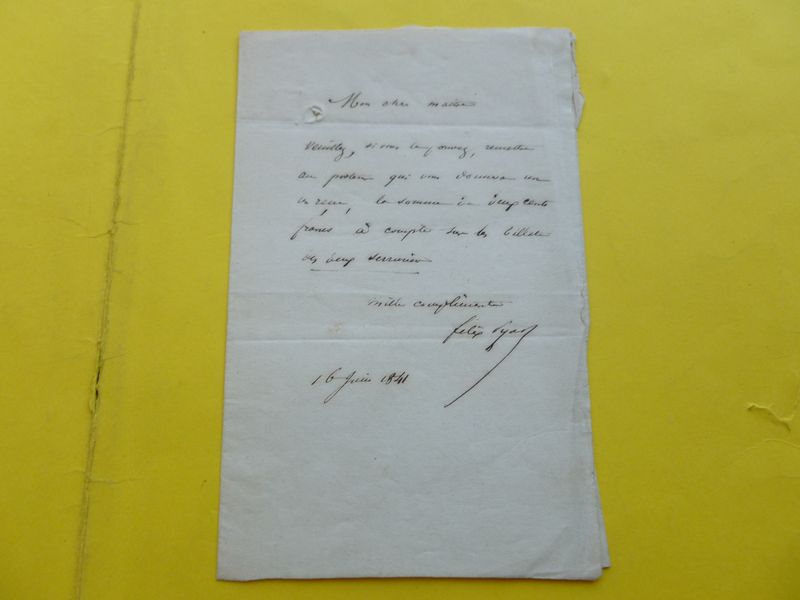 Mon cher maitre
veuillez, si vous le pouvez, remettre
au porteur qui vous donnera un
un reçu, la somme de deux cents
francs à compte sur les billets
des deux serruriers
mille compliments
félix Pyat
16 Juin 1841